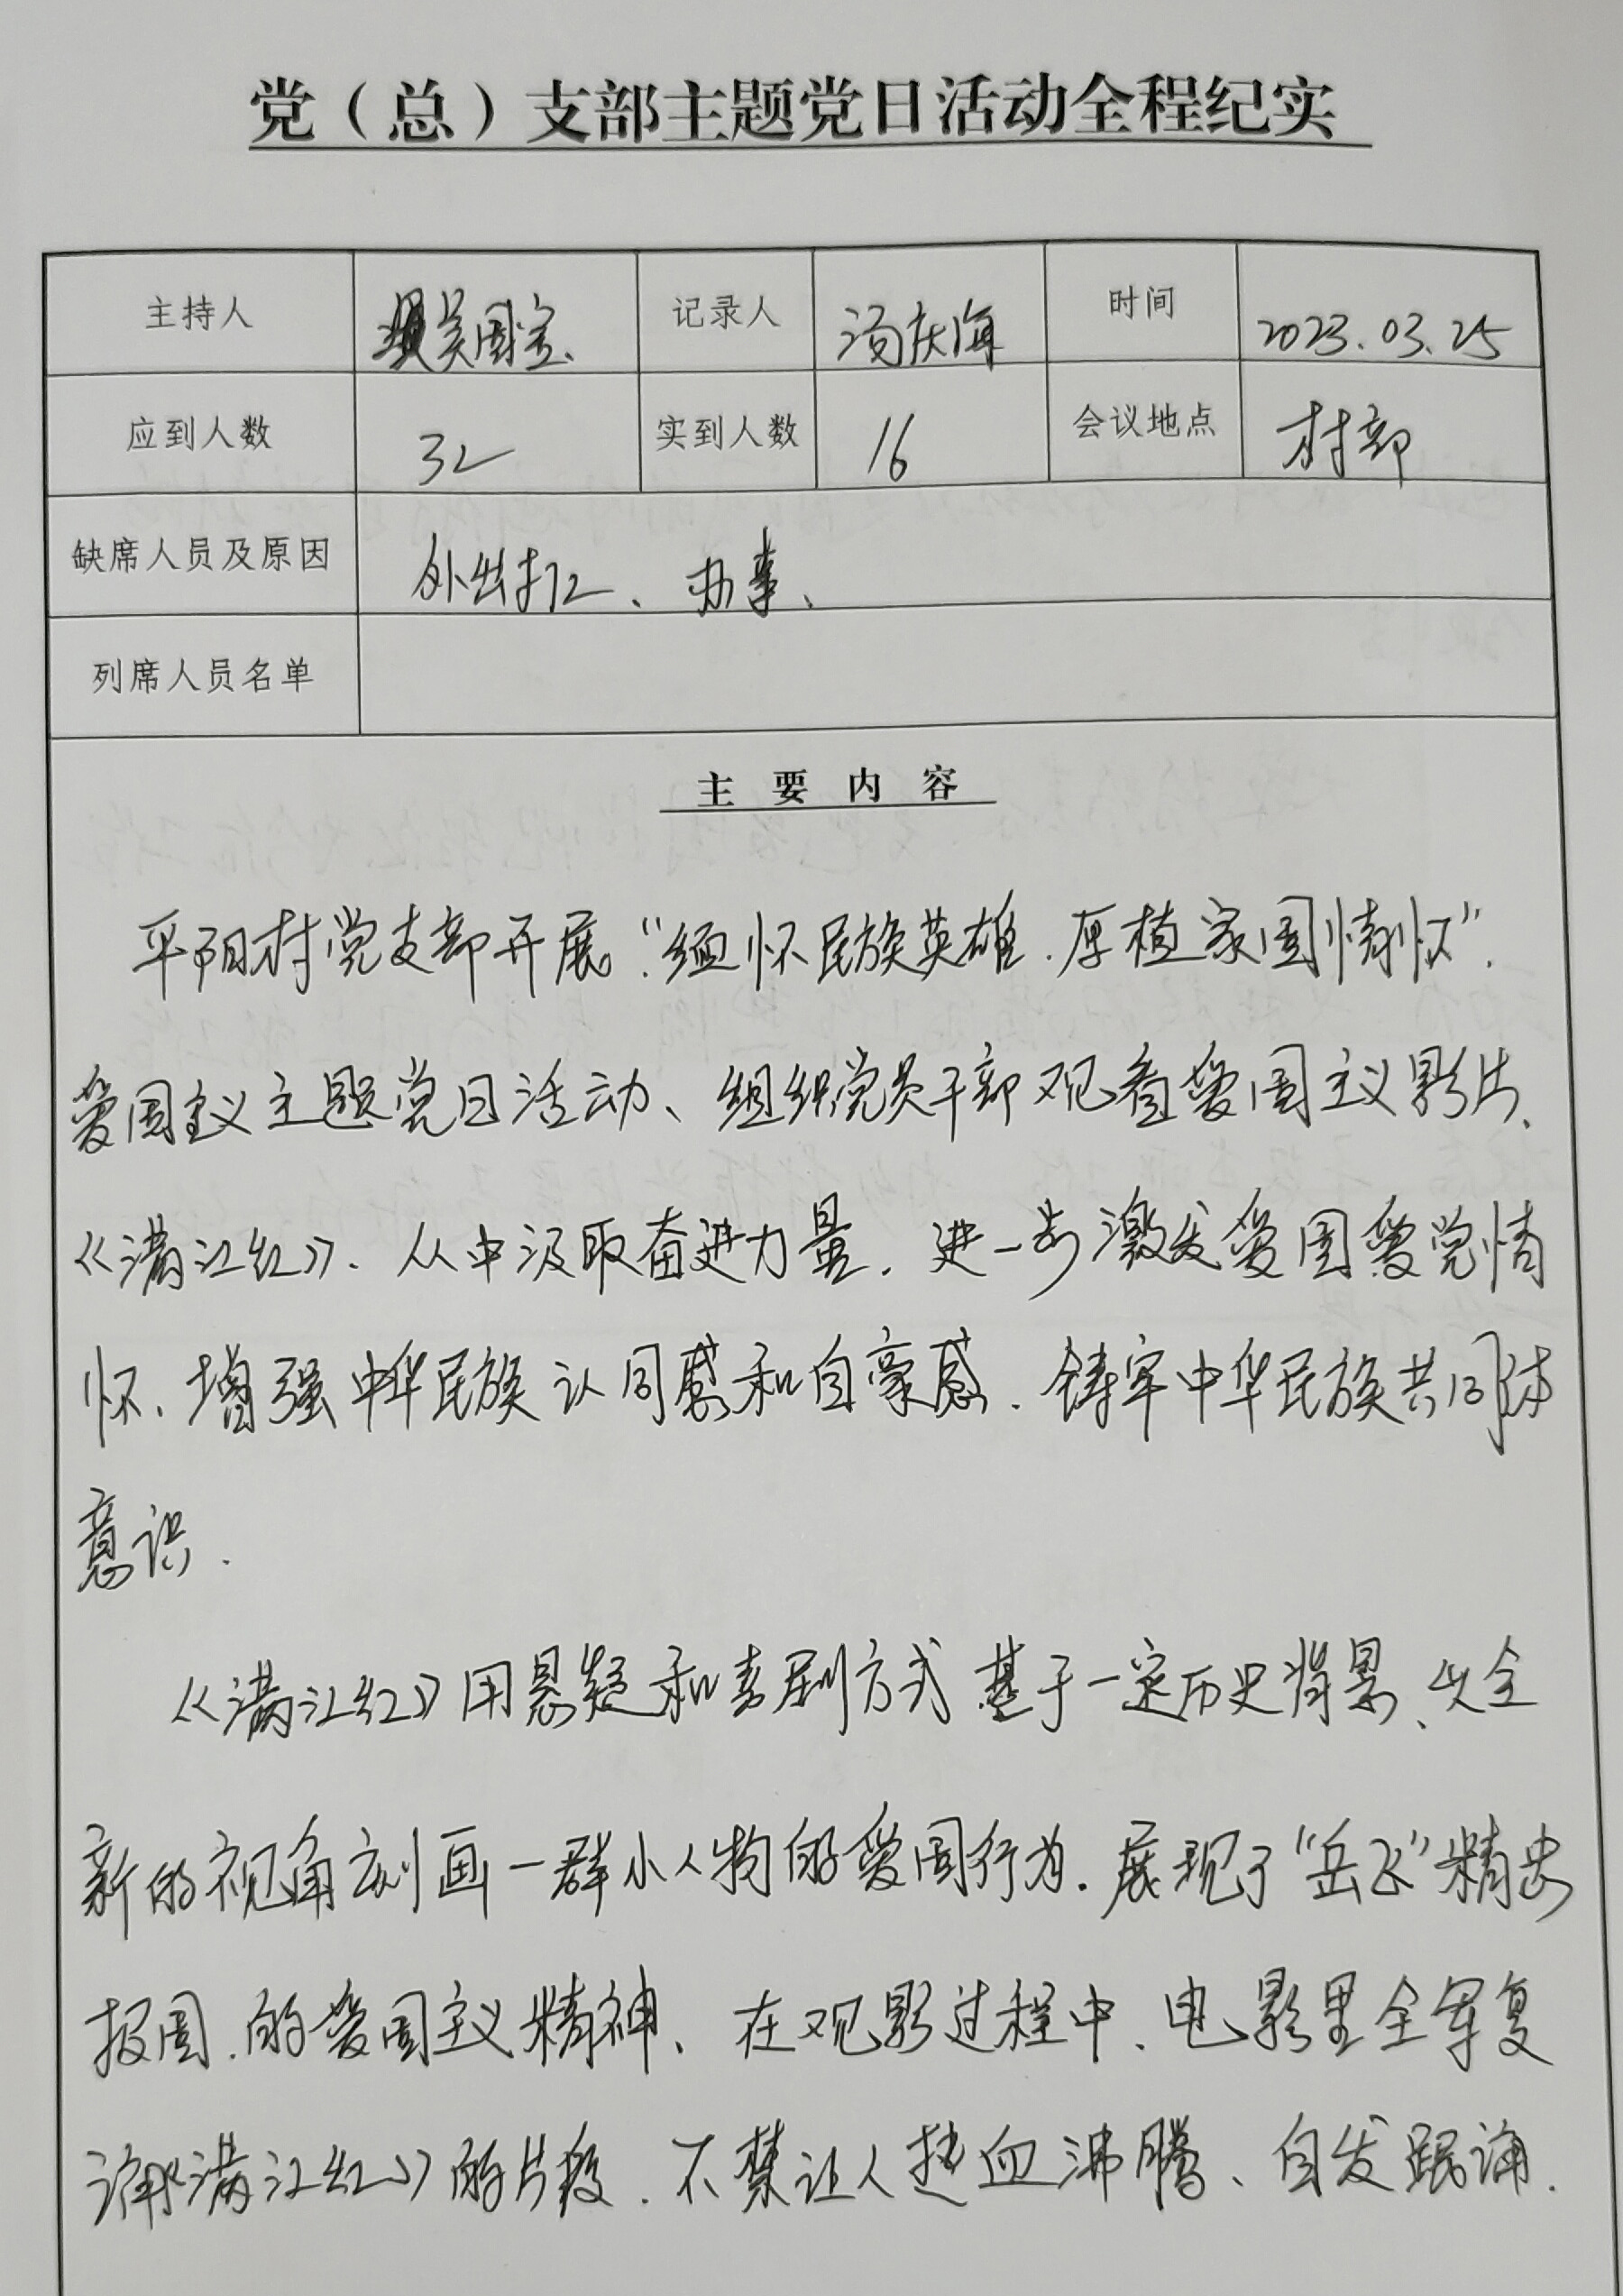 党（总）支部主题党日活动全程纪实
主持人 吴国宝、 记录人 汤庆海 时间 2023.03.25
应到人数 32 实到人数 16 会议地点 村部
缺席人员及原因 外出打工、办事、
列席人员名单
主要内容
平阳村党支部开展“缅怀民族英雄.厚植家国情怀”.
爱国主义主题党日活动、组织党员干部观看爱国主义影片、
《满江红》.从中汲取奋进力量.进一步激发爱国爱党情
怀、增强中华民族认同感和自豪感.铸牢中华民族共同体
意识.
《满江红》用悬疑和喜剧方式基于一定历史背景、以全
新的视角刻画一群小人物的爱国行为.展现了“岳飞”精忠
报国.的爱国主义精神、在观影过程中、电影里全军复
诵《满江红》的片段.不禁让人热血沸腾、自发跟诵.